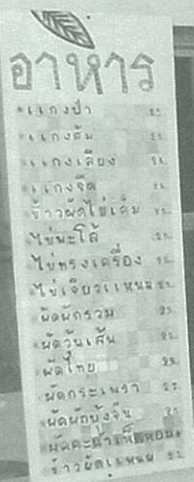 อาหาร
แกงป่า 25.
แกงส้ม 25.
แกงเลียง 25.
แกงจืด 25.
ข้าวผัดไข่เค็ม
ไข่พะโล้
ไข่ทรงเครื่อง 25.
ไข่เจียวแหนม 25.
ผัดผักรวม 25.
ผัดวุ้นเส้น 25.
ผัดไทย 25.
ผัดกระเพรา 25.
ผัดผักบุ้งจีน 25.
ผัดคะน้าเห็ดหอม
ข้าวผัดแหนม 25.